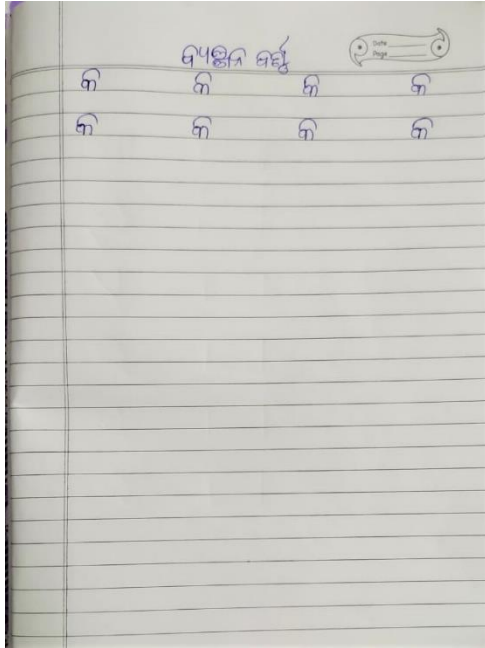 ବ୍ୟଞ୍ଜନ ବର୍ଣ୍ଣ
Date
Page
କ କ କ କ
କ କ କ କ